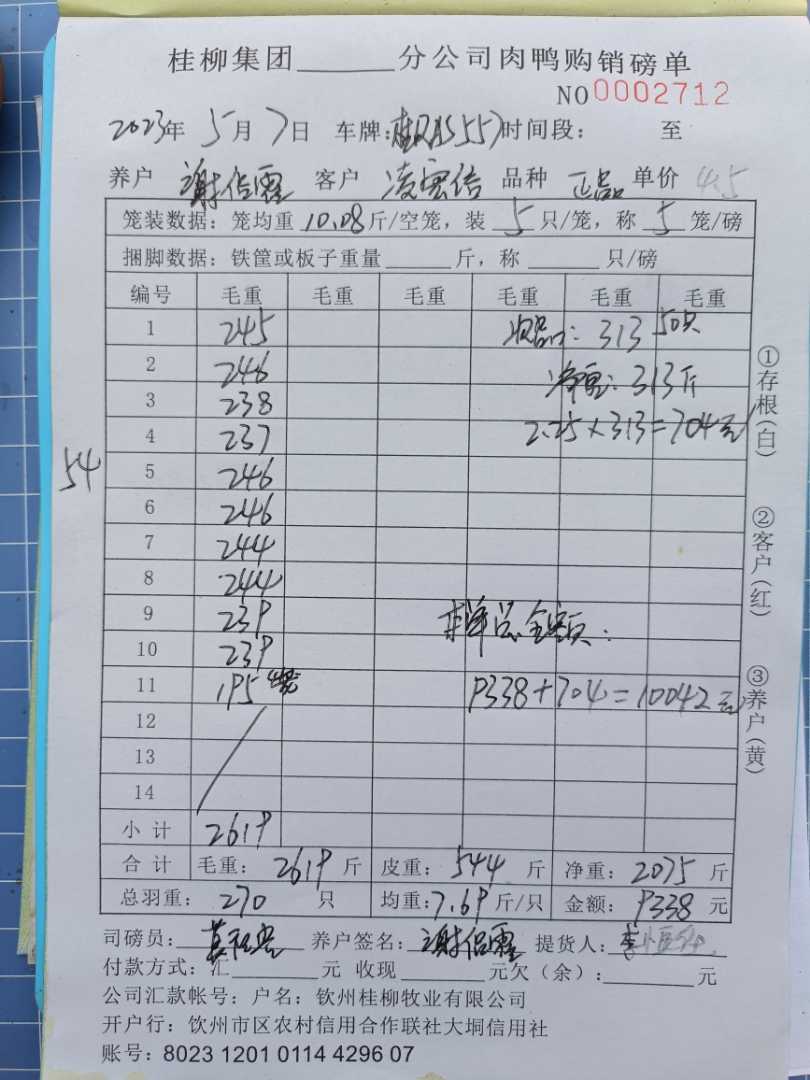 桂柳集团______分公司肉鸭购销磅单
NO 0002712
2023年 5月 7日 车牌:桂RAS557 时间段: 至
养户 谢 霞 客户 凌宏信 品种 正品 单价 4.5
笼装数据:笼均重 10.08 斤/空笼,装 5 只/笼,称 5 笼/磅
捆脚数据:铁筐或板子重量______斤,称______只/磅
编号 毛重 毛重 毛重 毛重 毛重 毛重
1 245 : 313 50只
2 246 净重: 313斤
3 238
4 237 2.25×313=704元
54
5 246
6 246
7 244
8 244
9 239 本单总金额:
10 239
11 195 4笼 9338+704=10042元
12
13
14
小计 2619
合计 毛重: 2619 斤 皮重: 544 斤 净重: 2075 斤
总羽重: 270 只 均重:7.69 斤/只 金额: 9338 元
司磅员: 养户签名: 谢 霞 提货人: 李
付款方式:汇______元 收现______元欠(余):______元
公司汇款帐号:户名:钦州桂柳牧业有限公司
开户行:钦州市区农村信用合作联社大垌信用社
账号:8023 1201 0114 4296 07
①存根(白)
②客户(红)
③养户(黄)